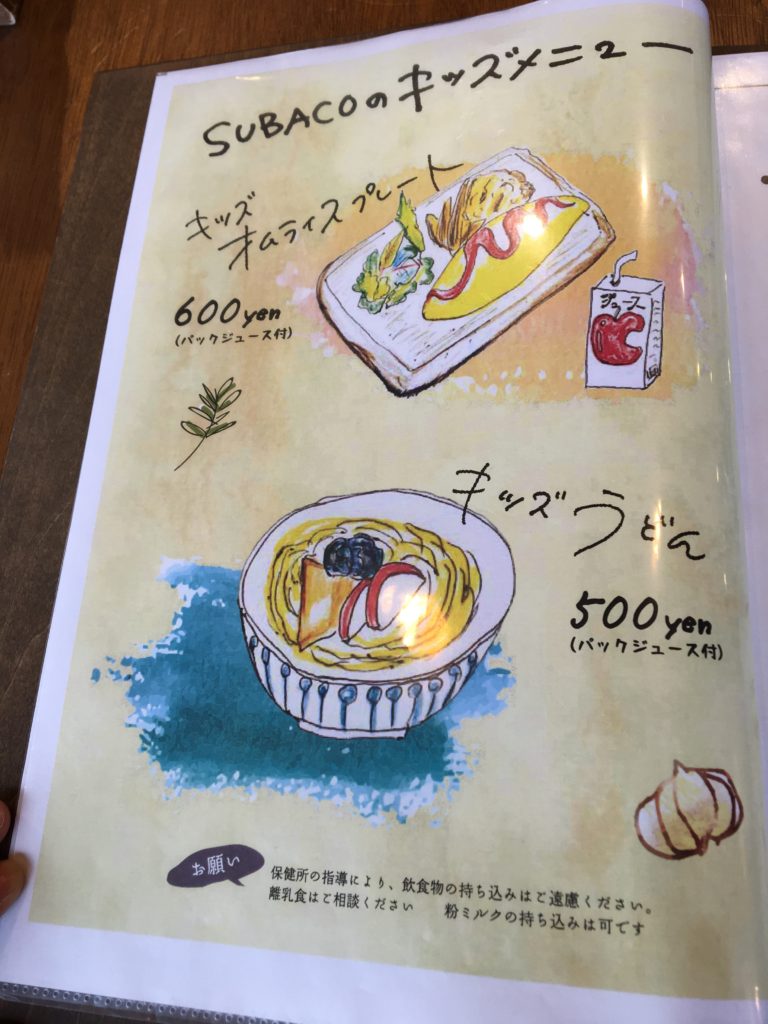 SUBACOのキッズメニュー
キッズ
オムライスプレート
600yen
(パックジュース付)
ジュース
キッズうどん
500yen
(パックジュース付)
お願い
保健所の指導により、飲食物の持ち込みはご遠慮ください。
離乳食はご相談ください　粉ミルクの持ち込みは可です